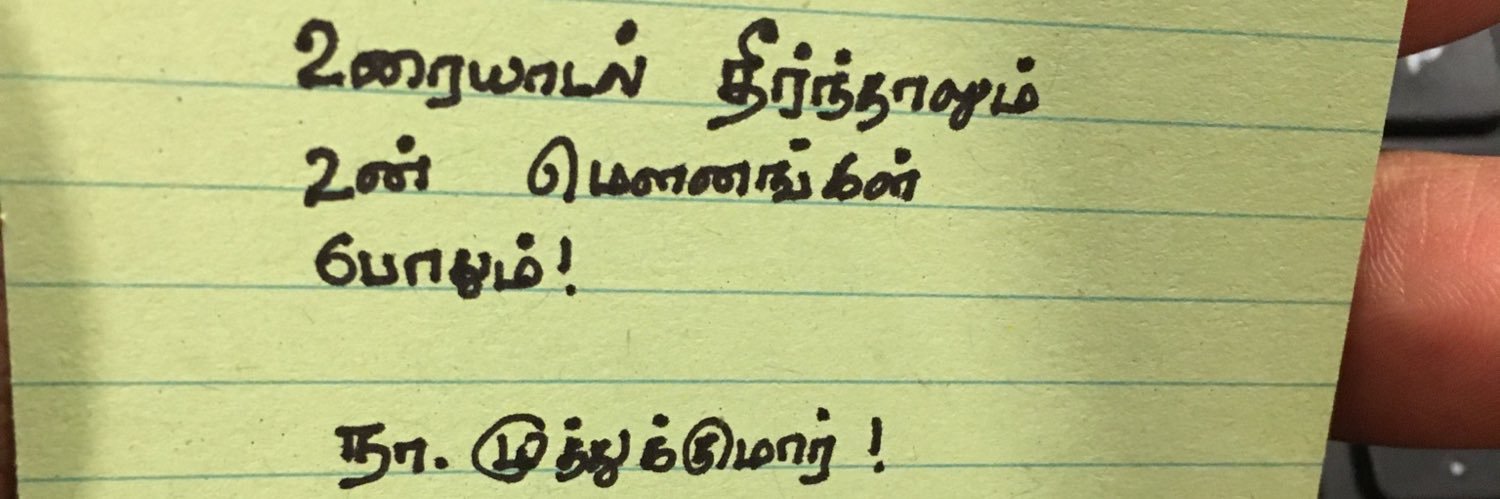 உரையாடல் தீர்ந்தாலும்
உன் மௌனங்கள்
போதும்!
நா. முத்துக்குமார் !